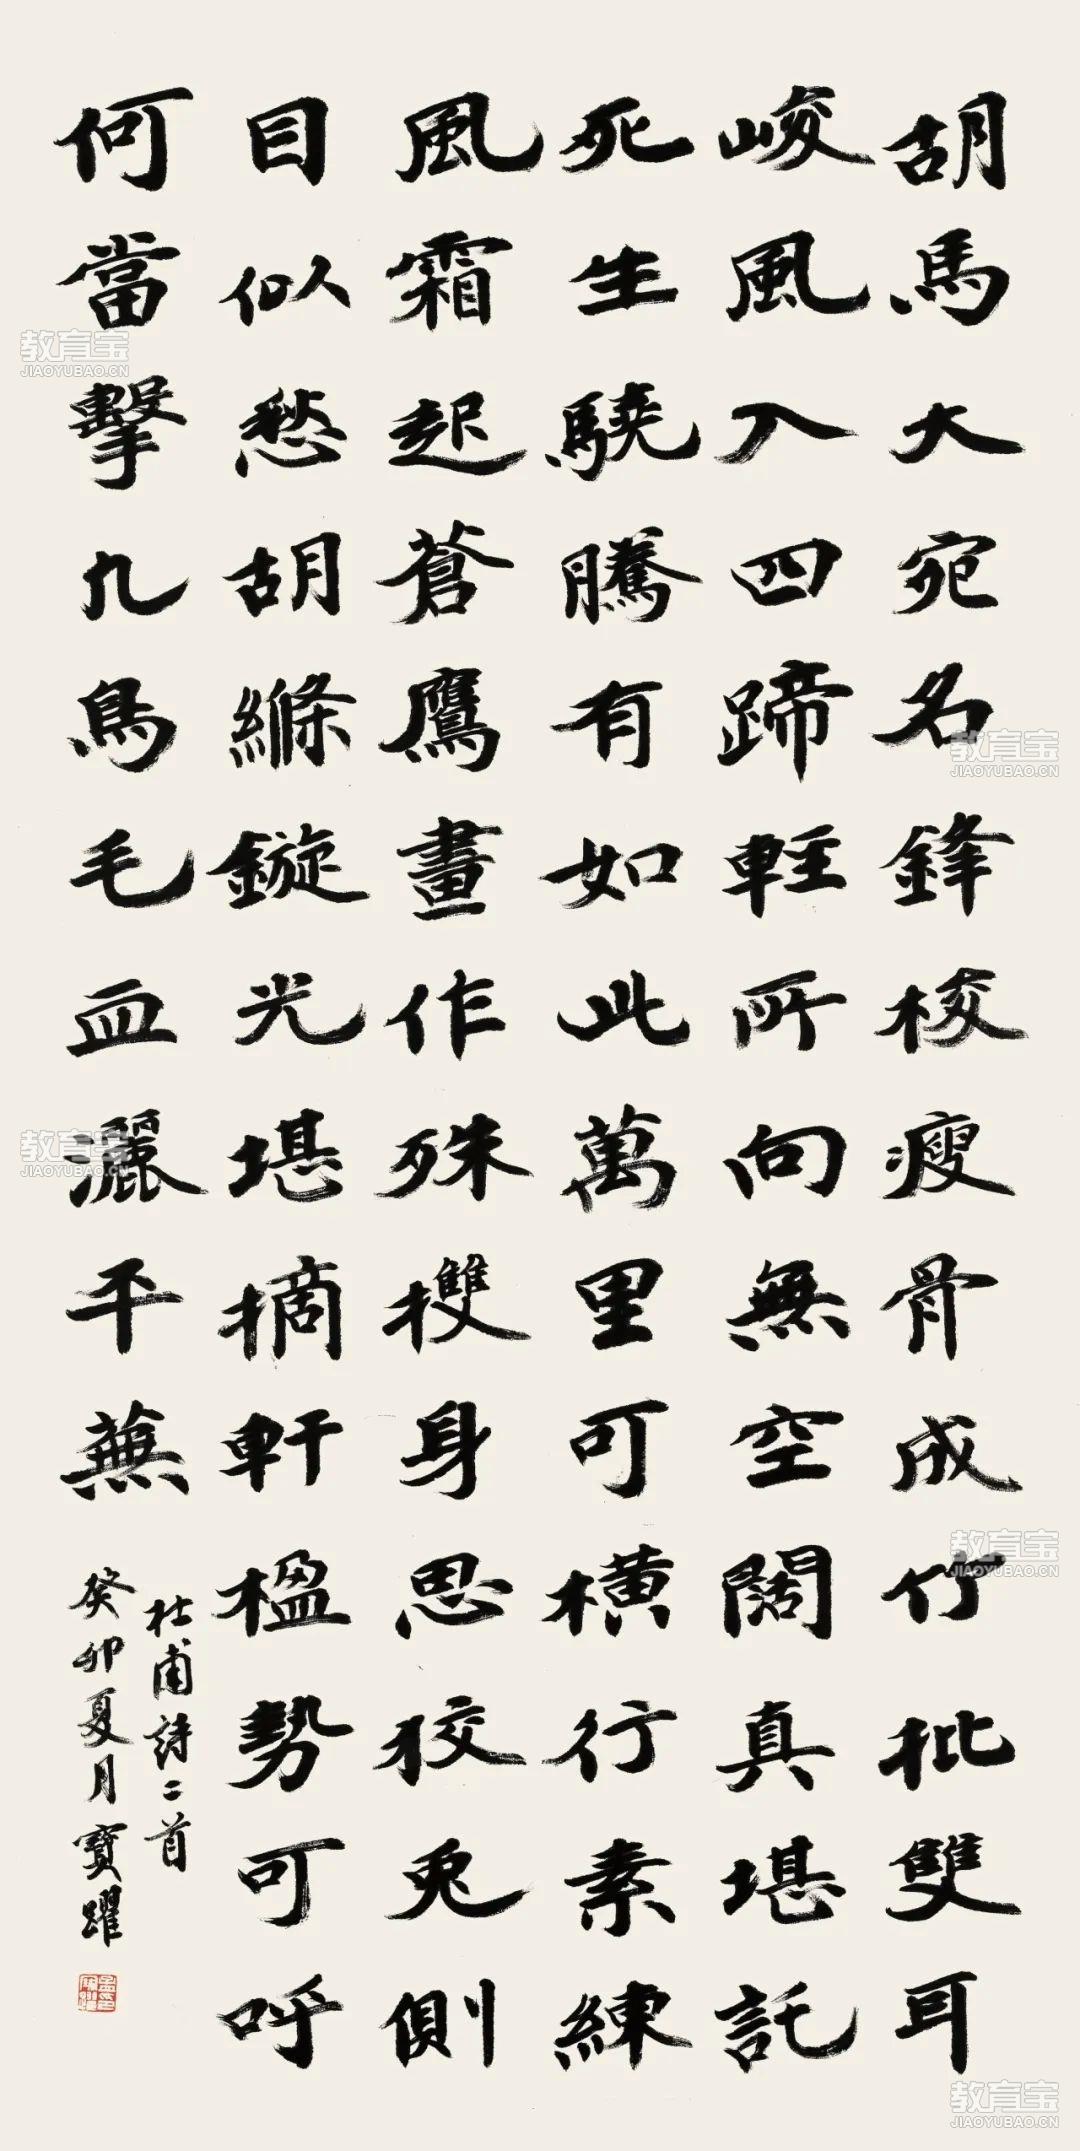 胡馬大宛名鋒棱瘦骨成竹批雙耳
峻風入四蹄輕所向無空闊真堪託
死生驍騰有如此萬里可橫行素練
風霜起蒼鷹畫作殊㩳身思狡兔側
目似愁胡縧鏇光堪摘軒楹勢可呼
何當擊凡鳥毛血灑平蕪
杜甫詩二首
癸卯夏月寶躍
教育宝
JIAOYUBAO.CN
教育宝
JIAOYUBAO.CN
教育宝
JIAOYUBAO.CN
教育宝
JIAOYUBAO.CN
教育宝
JIAOYUBAO.CN